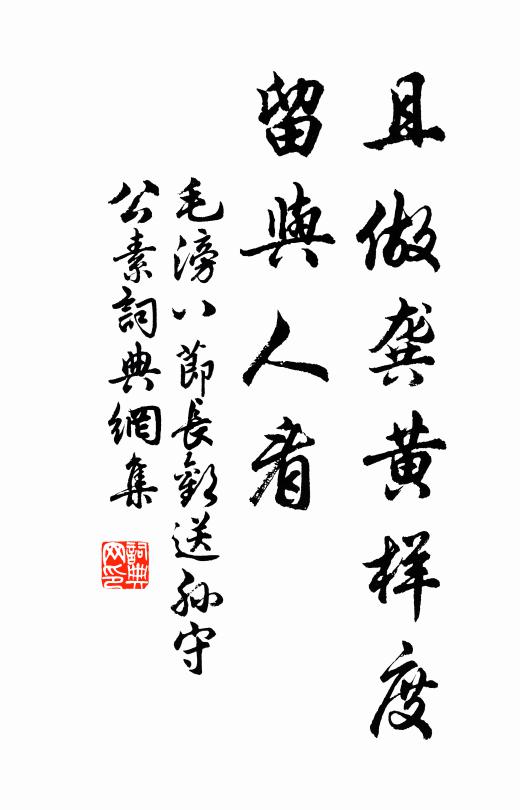 且做龚黄样度
留與人看
毛滂八節長歡送孙守
公素詞典網集
詞典
网印